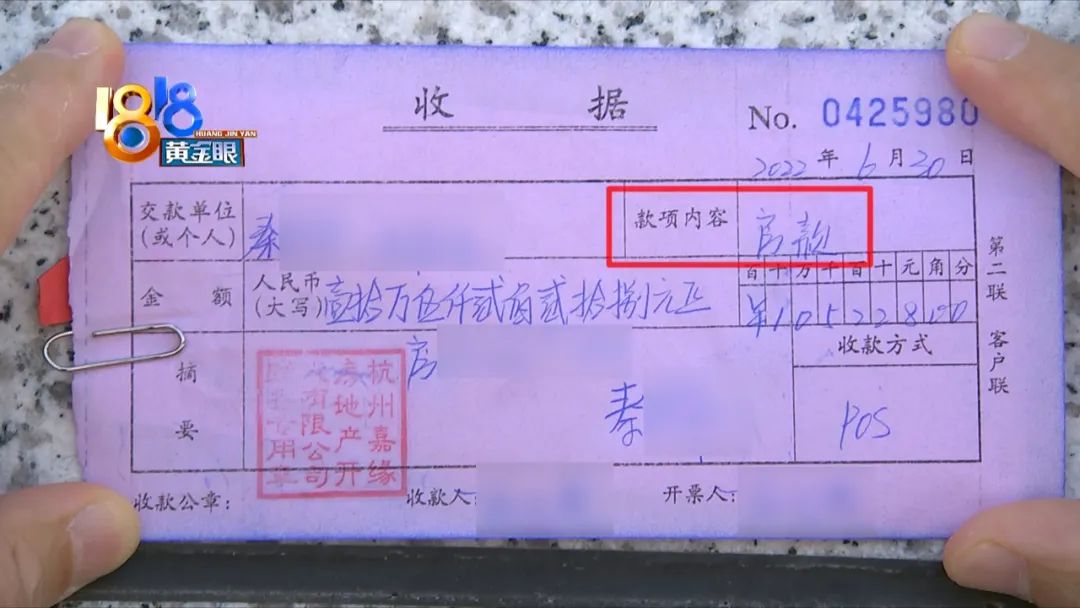 1818
HUANG JIN YAN
黄金眼
收 据
No. 0425980
2022 年 6 月 20 日
交款单位
(或个人)
秦
款项内容
房款
金 额
人民币
(大写)
壹拾万伍仟贰佰贰拾捌元正
百十万千百十元角分
¥10522800
收款方式
POS
摘
要
房
秦
杭州嘉缘
房地产开
发有限公司
专用章
第二联 客户联
收款公章:
收款人:
开票人: